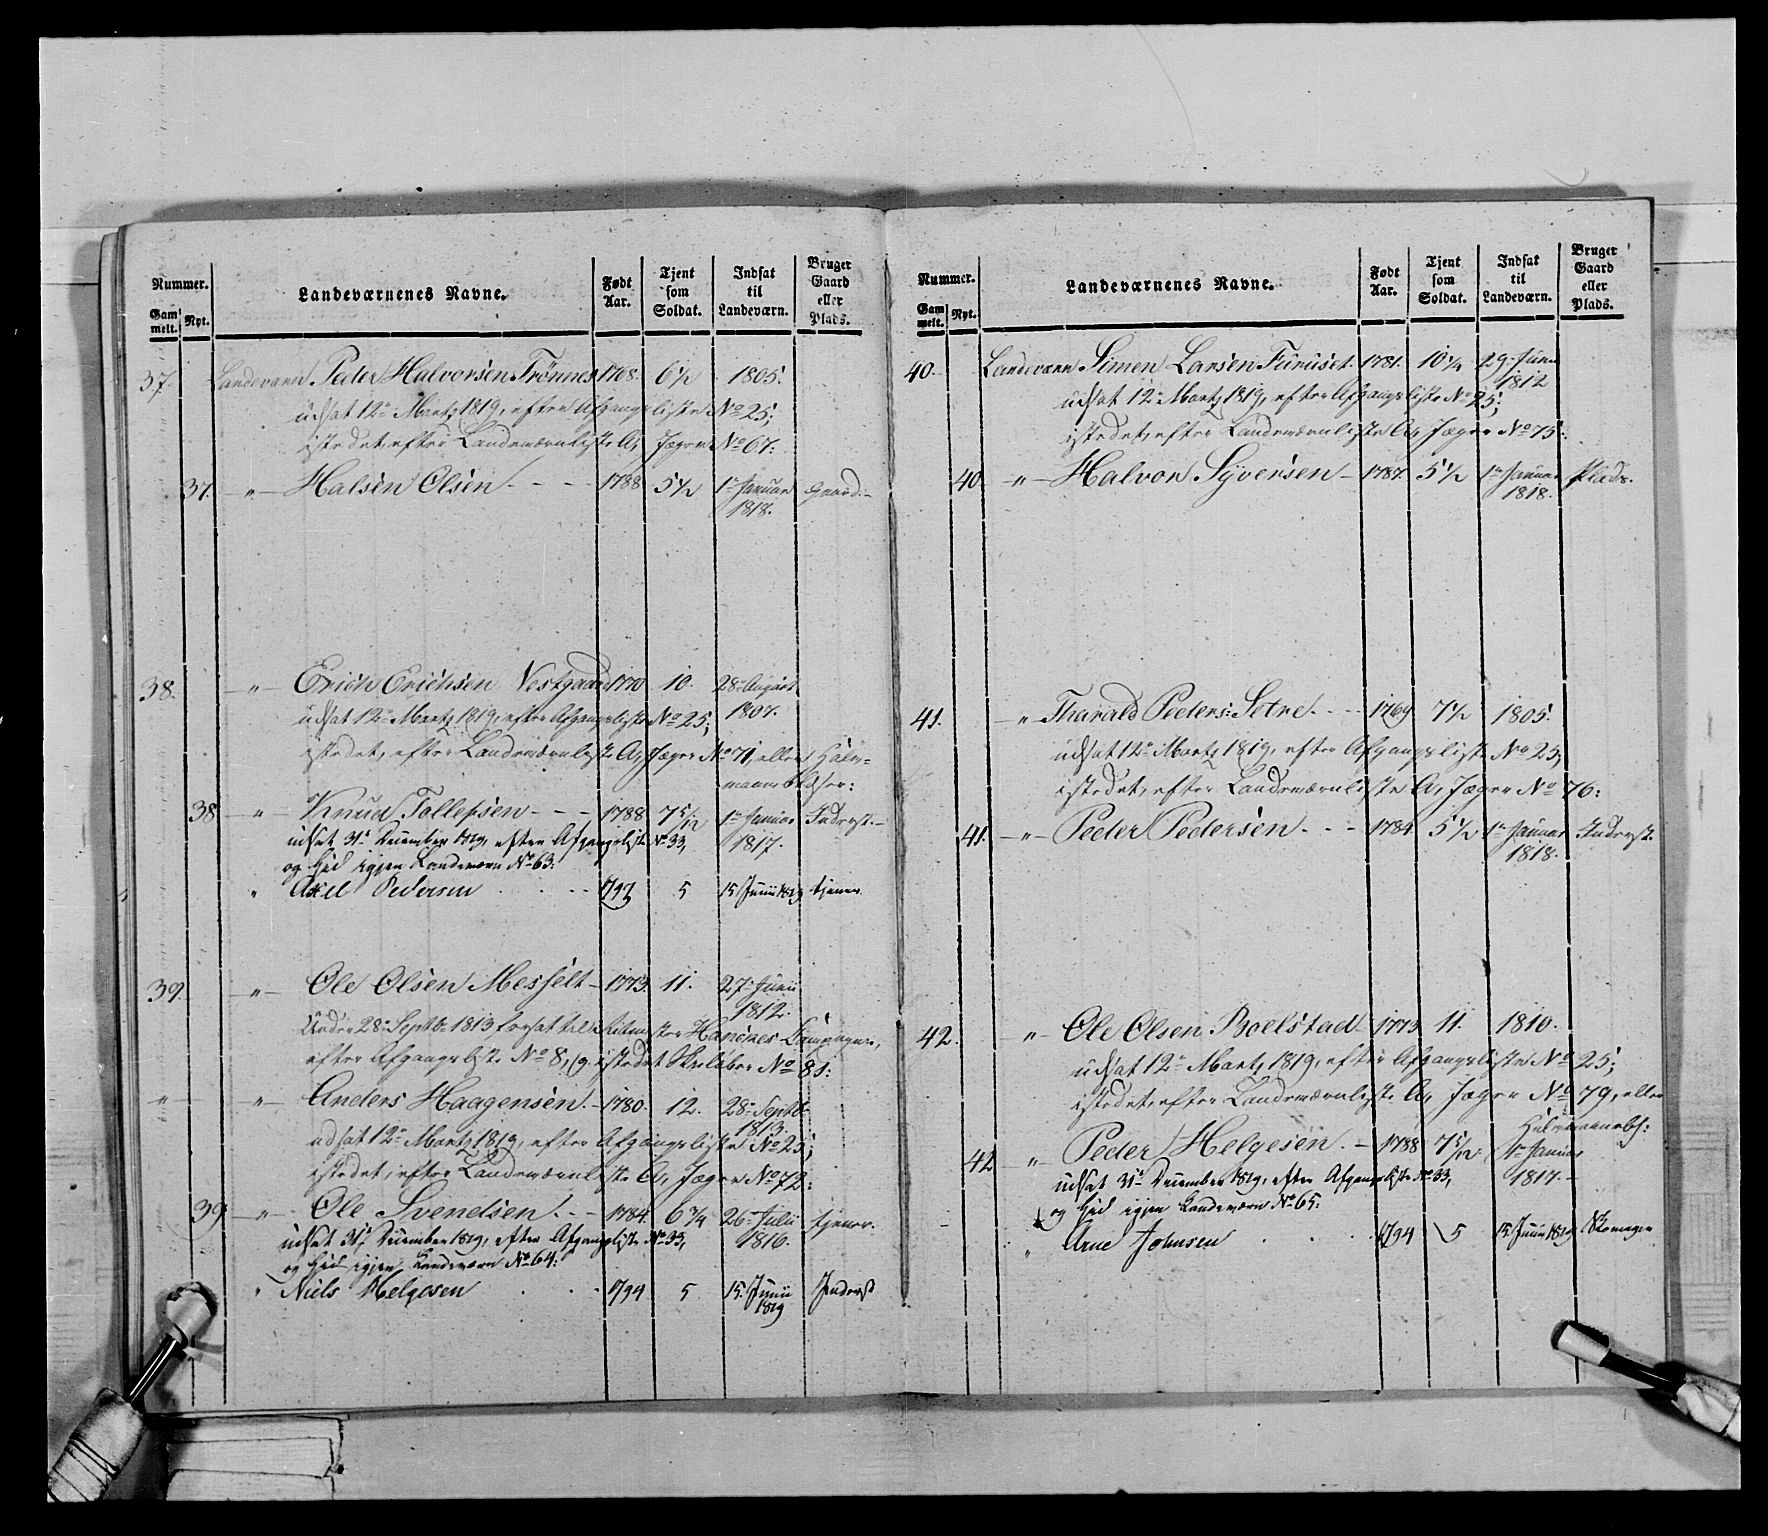 Nummer.
Gam
melt.
Nyt.
Landeværnenes Navne.
Født
Aar.
Tjent
som
Soldat.
Indsat
til
Landeværn.
Bruger
Gaard
eller
Plads.
37. Landeværn Peder Halvorsen Trønnes 1768. 6½ 1805.
udsat 12te Martz 1819, efter Afgangsliste No 25;
istedet, efter Landeværnliste A, Jæger No 67:
37. -"- Halsen Olsen - - - 1788 5½ 1te Januar Gaard.-
1818.
38. -"- Erich Erichsen Vestgaard 1770 10. 28de August
udsat 12te Martz 1819, efter Afgangsliste No 25; 1807.
istedet, efter Landeværnliste A, Jæger No 71, eller
38 " Knud Tollefsen - - - 1788 7 5/12 1te Januar Inderst.-
udsat 31te December 1819, efter Afgangsliste No 33, 1817.
og hid igjen Landeværn No 63:
" Axel Pedersen - - - 1792 5 15 Junii 1819 tjener
39. -"- Ole Olsen Messelt - 1773. 11. 27de Junii
1812.
Under 28de Septb. 1813 forsat til Ritmester Compagnie,
efter Afgangsliste No 8, og istedet Skieløber No 81:
" -"- Anders Haagensen. - 1780. 12. 28de Septb
1813.
udsat 12te Martz 1819, efter Afgangsliste No 25;
istedet, efter Landeværnliste A, Jæger No 72:
39 -"- Ole Svendsen. - - 1784. 6¾ 26de Julii tjener.
udsat 31te December 1819, efter Afgangsliste No 33, 1816.
og hid igjen Landeværn No 64:
" Niels Helgesen - - - 1794 5 15. Junii Inderst
1819
Nummer.
Gam
melt.
Nyt.
Landeværnenes Navne.
Født
Aar.
Tjent
som
Soldat.
Indsat
til
Landeværn.
Bruger
Gaard
eller
Plads.
40. Landeværn Simen Larsen Furuset. 1781. 10¼ 29de Junii
1812
udsat 12te Martz 1819, efter Afgangsliste No 25;
istedet, efter Landeværnliste A, Jæger No 75:
40 -"- Halvor Syversen - 1787. 5½ 1te Januar Plads.
1818.
41. -"- Tharald Peders: Sætre. - - 1769 7½ 1805.
udsat 12te Martz 1819, efter Afgangsliste No 25,
istedet, efter Landeværnliste A, Jæger No 76:
41. -"- Peder Pedersen. - - - 1784. 5½ 1te Januar Inderst.
1818.
42. -"- Ole Olsen Boelstad - 1773 11. 1810.
udsat 12te Martz 1819, efter Afgangsliste No 25;
istedet, efter Landeværnliste A, Jæger No 79, eller
42 " Peder Helgesen. - - 1788 7 5/12. 1te Januar
udsat 31te December 1819, efter Afgangsliste No 33, 1817.-
og hid igjen Landeværn No 65:
" Arne Johnsen - - - 1794 5 15. Junii 1819